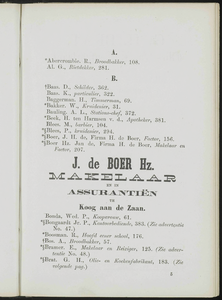 A.
*Abercrombie. R., Broodbakker, 108.
Al. G., Rietdekker, 281.
B.
*Baas. D., Schilder, 362.
Bass. K., particulier, 322.
Baggerman. H., Timmerman, 69.
*Bakker. W., Kruidenier, 31.
Banling. A. L., Stationschef, 372.
*Beek. H. ten Harmsen v. d., Apotheker, 381.
Blees. M., barbier, 104.
*Blees. P., kruidenier, 294.
*Boer. J. H. de, Firma H. de Boer, Factor, 156.
*Boer Hz. Jan de, Firma H. de Boer, Makelaar en
Factor, 207.
J. de BOER Hz.
MAKELAAR
EN IN
ASSURANTIËN
TE
Koog aan de Zaan.
Bonda, Wed. P., Kuiperesse, 61.
*Bongaardt Jr. P., Koekbakkerij, 385. (Zie advertentie
No. 47.)
*Boosman. R., Hoofd eener school, 176.
*Bos. A., Broodbakker, 57.
*Brameer. K., Makelaar en Reiziger, 125. (Zie adver-
tentie No. 48.)
*Brat. G. H., Olie- en Koekenfabrikant, 185. (Zie
volgende pag.)
5